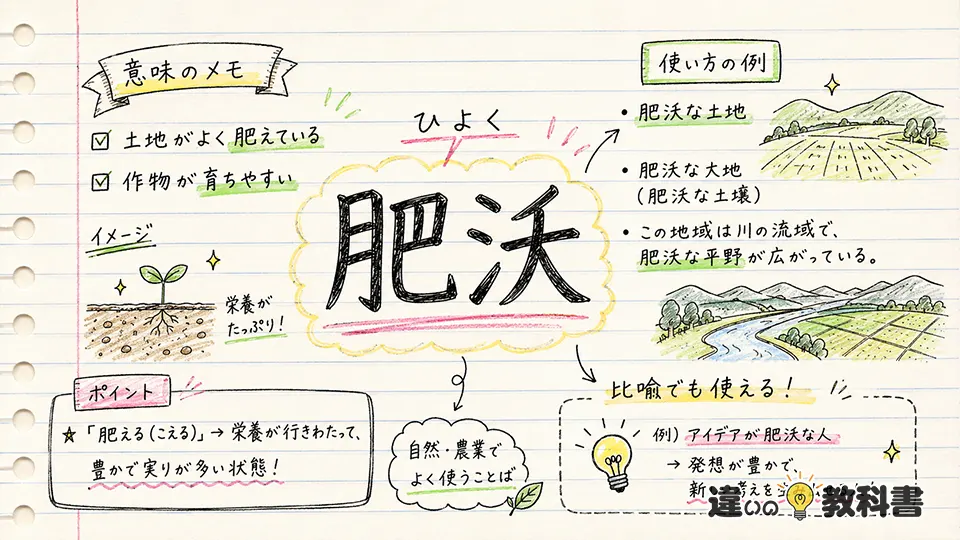 意味のメモ
土地がよく肥えている
作物が育ちやすい
イメージ
栄養が
たっぷり!
ひよく
肥沃
使い方の例
• 肥沃な土地
• 肥沃な大地
(肥沃な土壌)
• この地域は川の流域で、
肥沃な平野が広がっている。
ポイント
「肥える(こえる)」→ 栄養が行きわたって、
豊かで実りが多い状態!
自然・農業で
よく使うことば
比喩でも使える!
例) アイデアが肥沃な人
→ 発想が豊かで、
新 考えを
違いの教科書